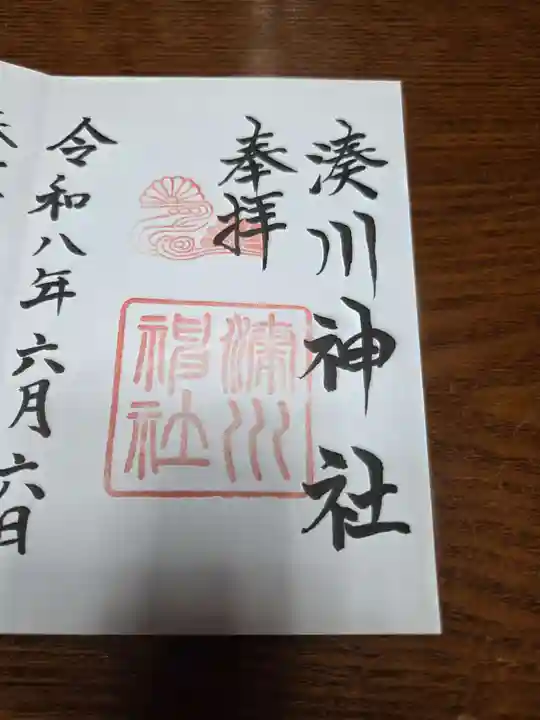 湊川神社
奉拝
湊川
神社
令和八年六月六日